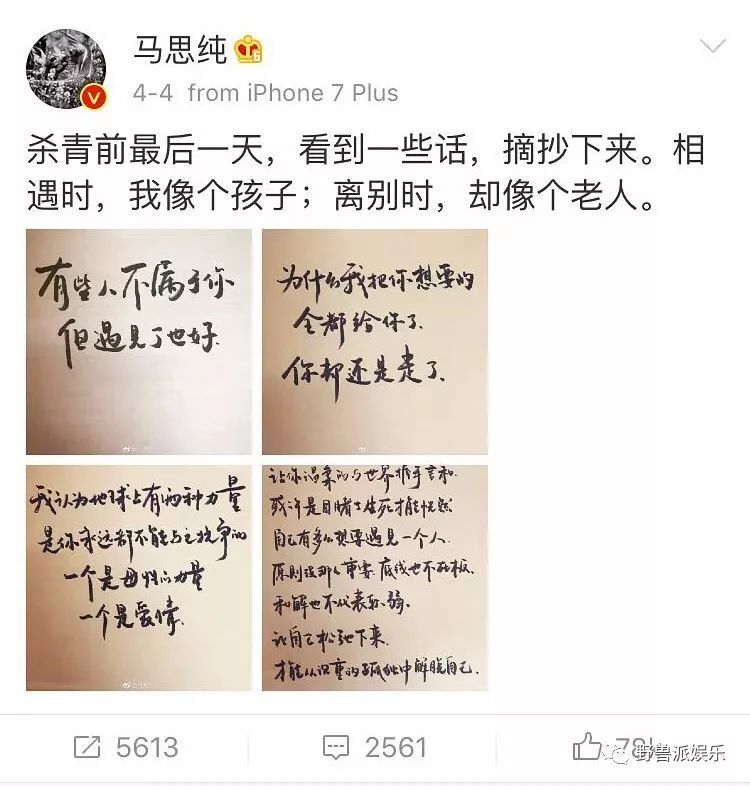 马思纯
4-4 from iPhone 7 Plus
杀青前最后一天，看到一些话，摘抄下来。相
遇时，我像个孩子；离别时，却像个老人。
有些人不属于你
但遇见了也好.
为什么我把你想要的
全都给你了.
你却还是走了.
我认为地球上有两种力量
是你永远都不能与之抗争的
一个是母性的力量
一个是爱情.
让你温柔的与世界握手言和.
或许是目睹生死才能恍然
自己有多么想要遇见一个人.
原则没那么重要 底线也不死板.
和解也不代表软弱.
让自己松弛下来.
才能从沉重的孤独中解脱自己.
5613
2561
78
野兽派娱乐